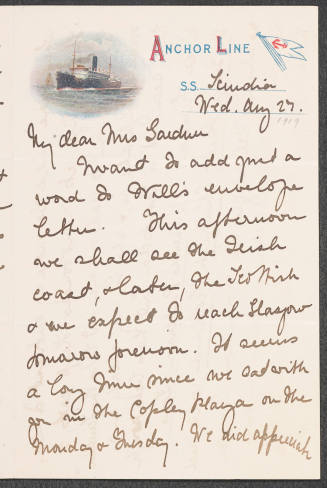 ANCHOR LINE
S.S. Scindia
Wed. Aug 27.
1919
My dear Mrs Gardner
I want to add just a
word to Will's envelope
letter. This afternoon
we shall see the Irish
coast, & later, the Scottish
& we expect to reach Glasgow
tomorrow forenoon. It seems
a long time since we sat with
you in the Copley Plaza on the
Monday & Tuesday. We did appreciate